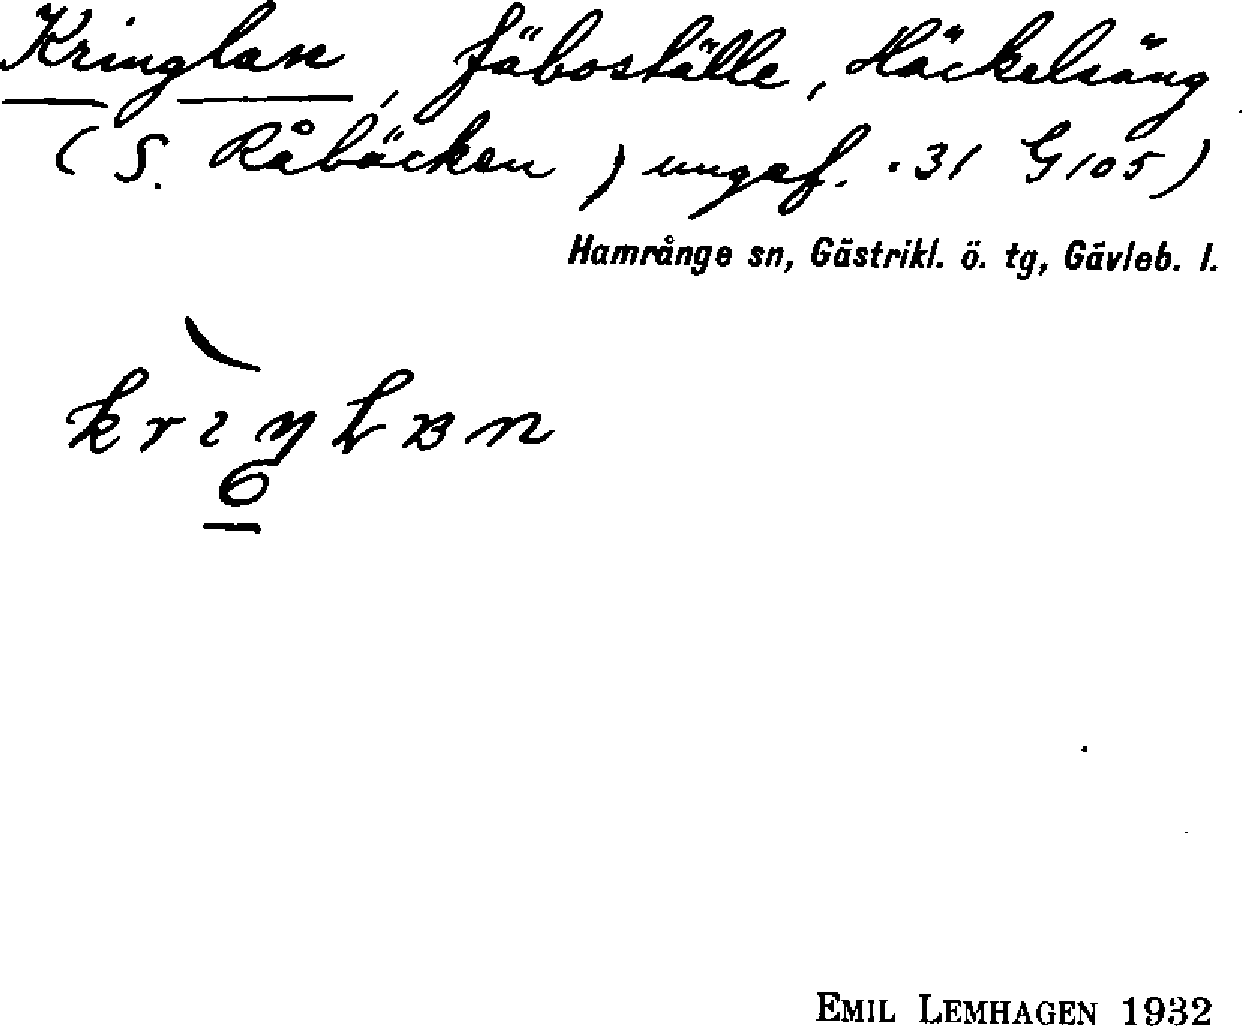 Kringlan, fäboställe, Häckelsäng
(S. Råbäcken, ungef. · 31 G 105)
Hamrånge sn, Gästrikl. ö. tg, Gävleb. l.
6
EMIL LEMHAGEN 1932